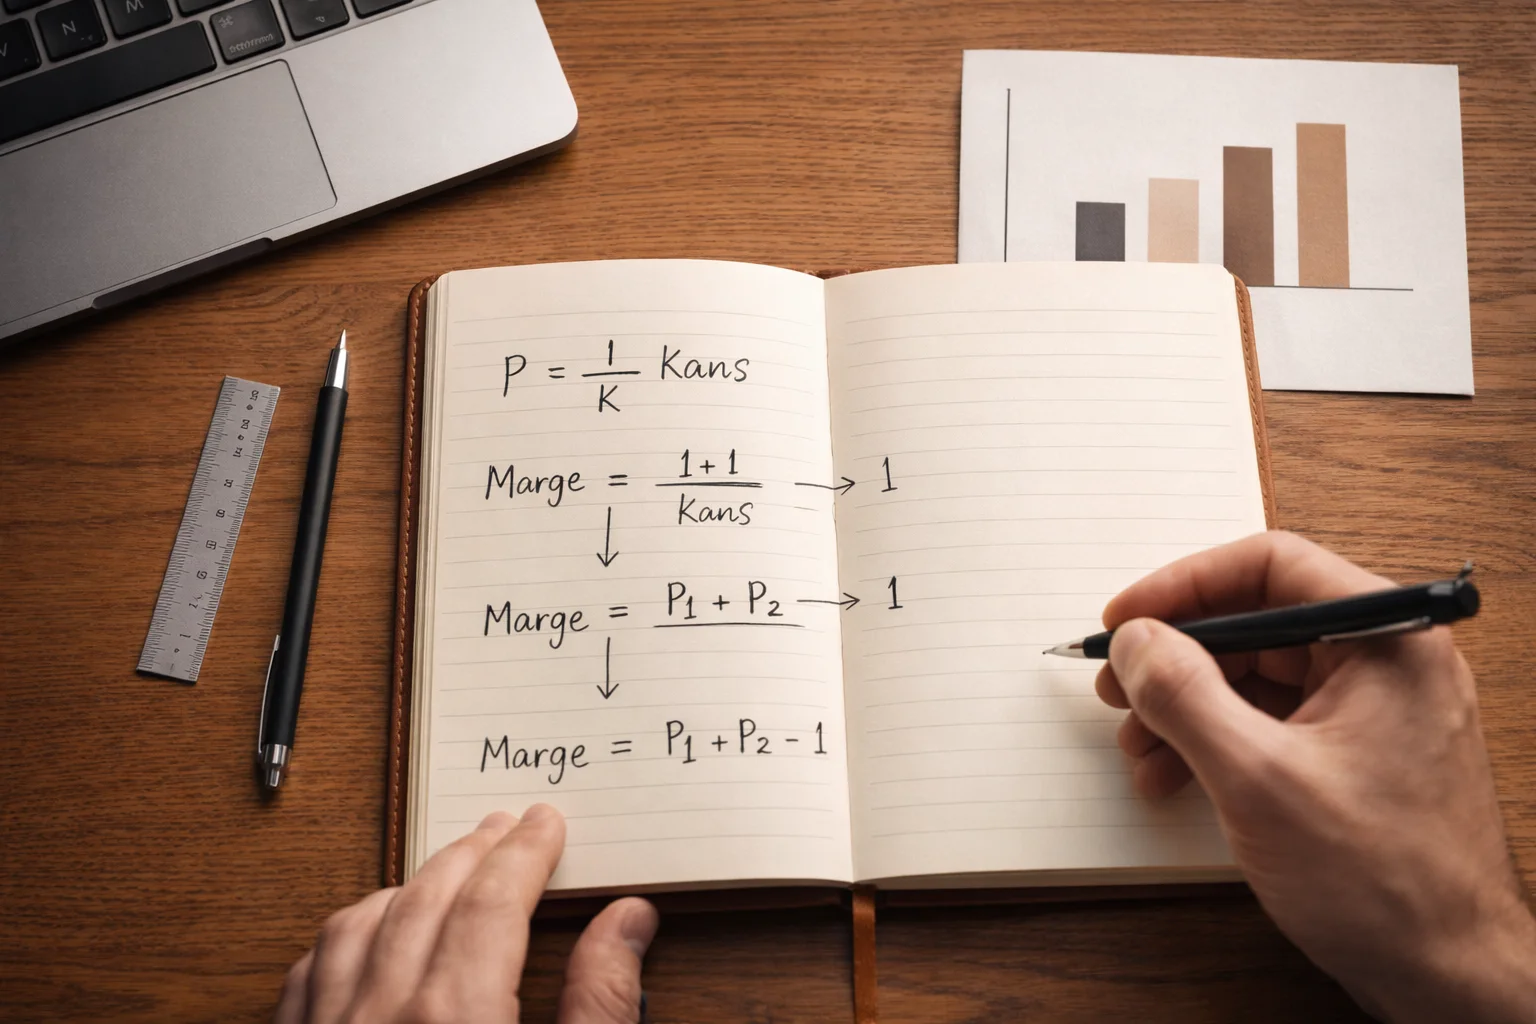 P = 1/K Kans
Marge = 1 + 1 / Kans → 1
↓
Marge = P₁ + P₂ → 1
↓
Marge = P₁ + P₂ - 1